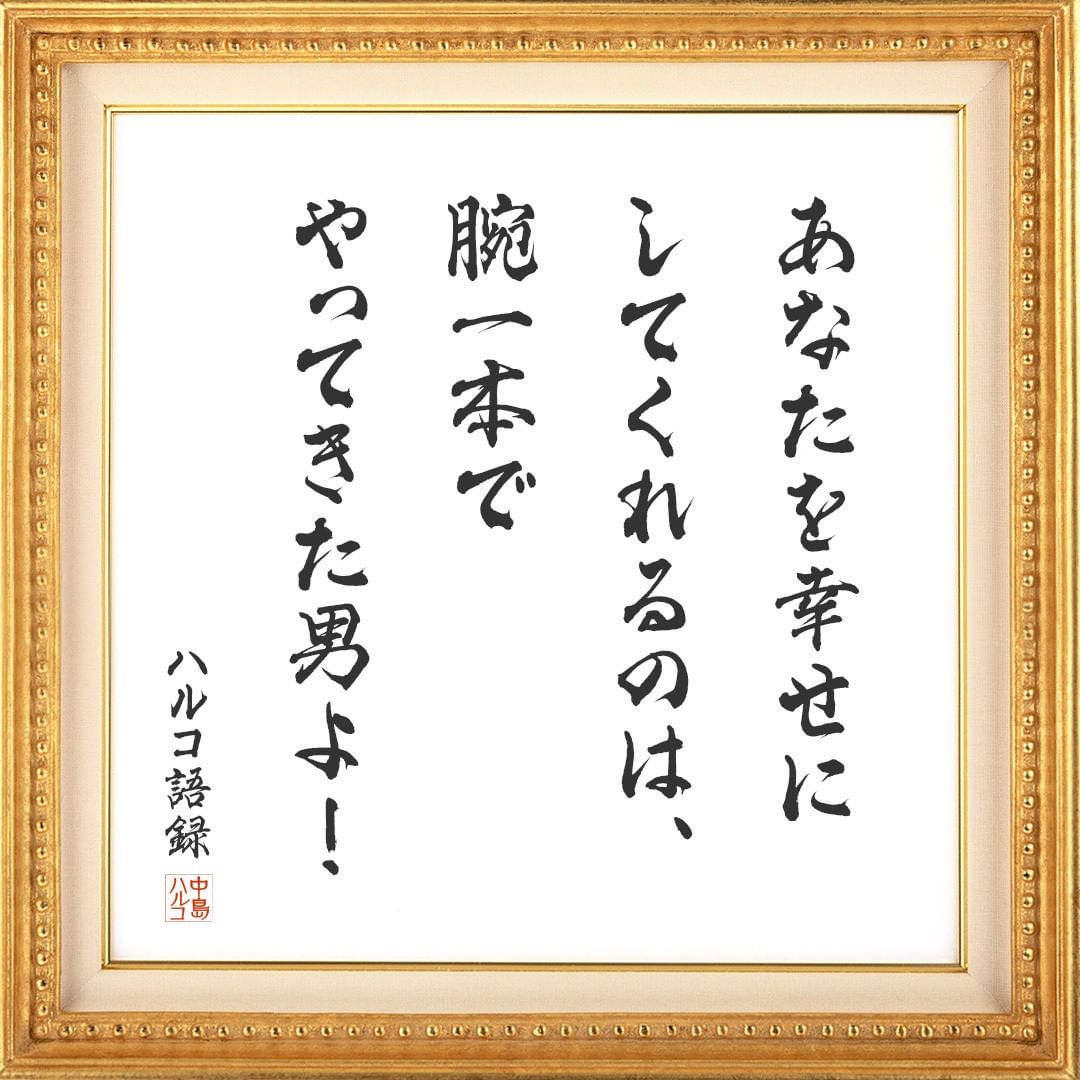 あなたを幸せに
してくれるのは、
腕一本で
やってきた男よ！
ハルコ語録
中島
ハルコ